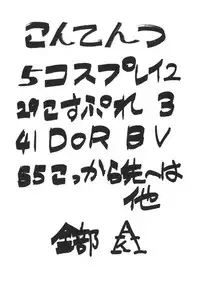 こんてんつ
5コスプレイ2
29こすぷれ 3
41 DOR B V
55こっから先へは
他
全部 AкI